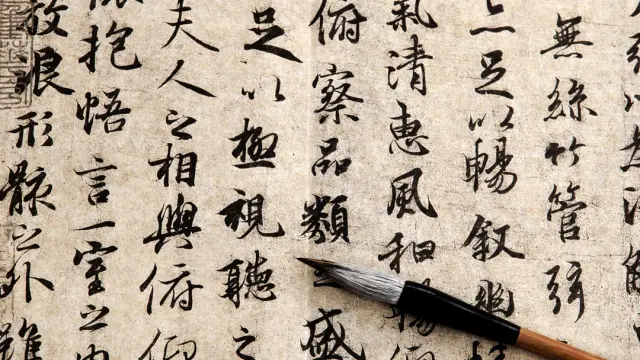 無絲竹管弦
亦足以暢敘幽情
氣清惠風和暢
俯察品類之盛
足以極視聽之
夫人之相與俯仰
懷抱悟言一室之內
放浪形骸之外雖